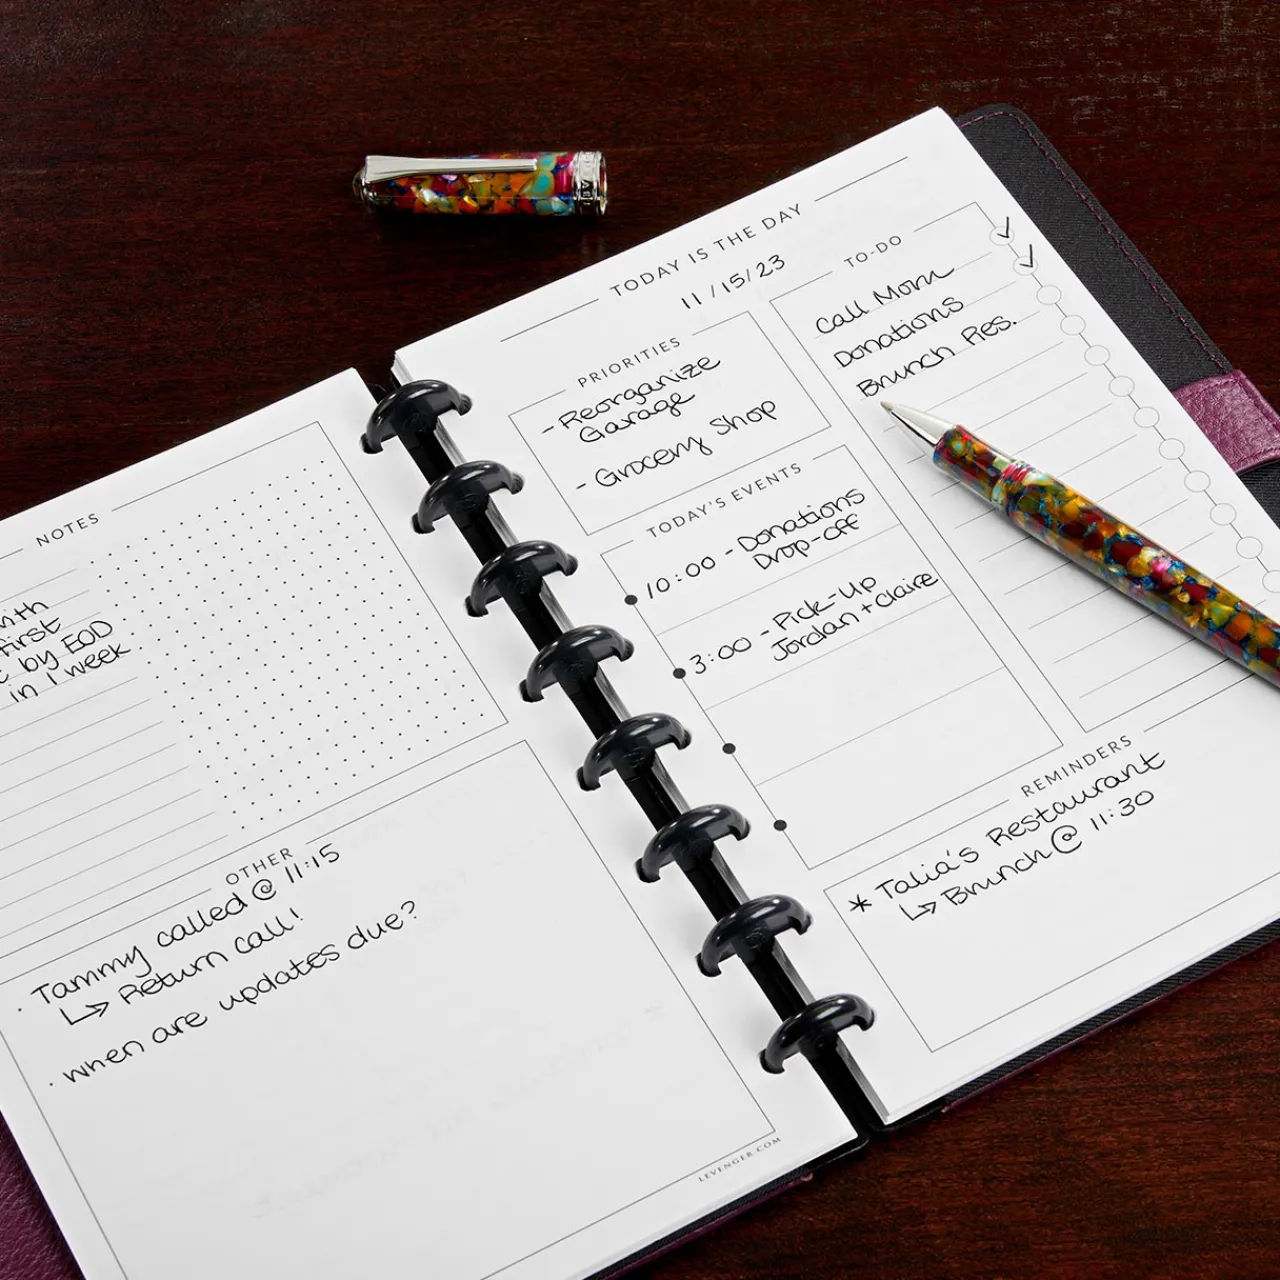 NOTES
first
by EOD
in 1 week
OTHER
· Tammy called @ 11:15
↳ Return call!
· when are updates due?
LEVENGER.COM
TODAY IS THE DAY
11/15/23
PRIORITIES
- Reorganize
Garage
- Grocery Shop
TODAY'S EVENTS
10:00 - Donations
Drop-off
3:00 - Pick-Up
Jordan + Claire
TO-DO
Call Mom
Donations
Brunch Res.
REMINDERS
* Talia's Restaurant
↳ Brunch @ 11:30